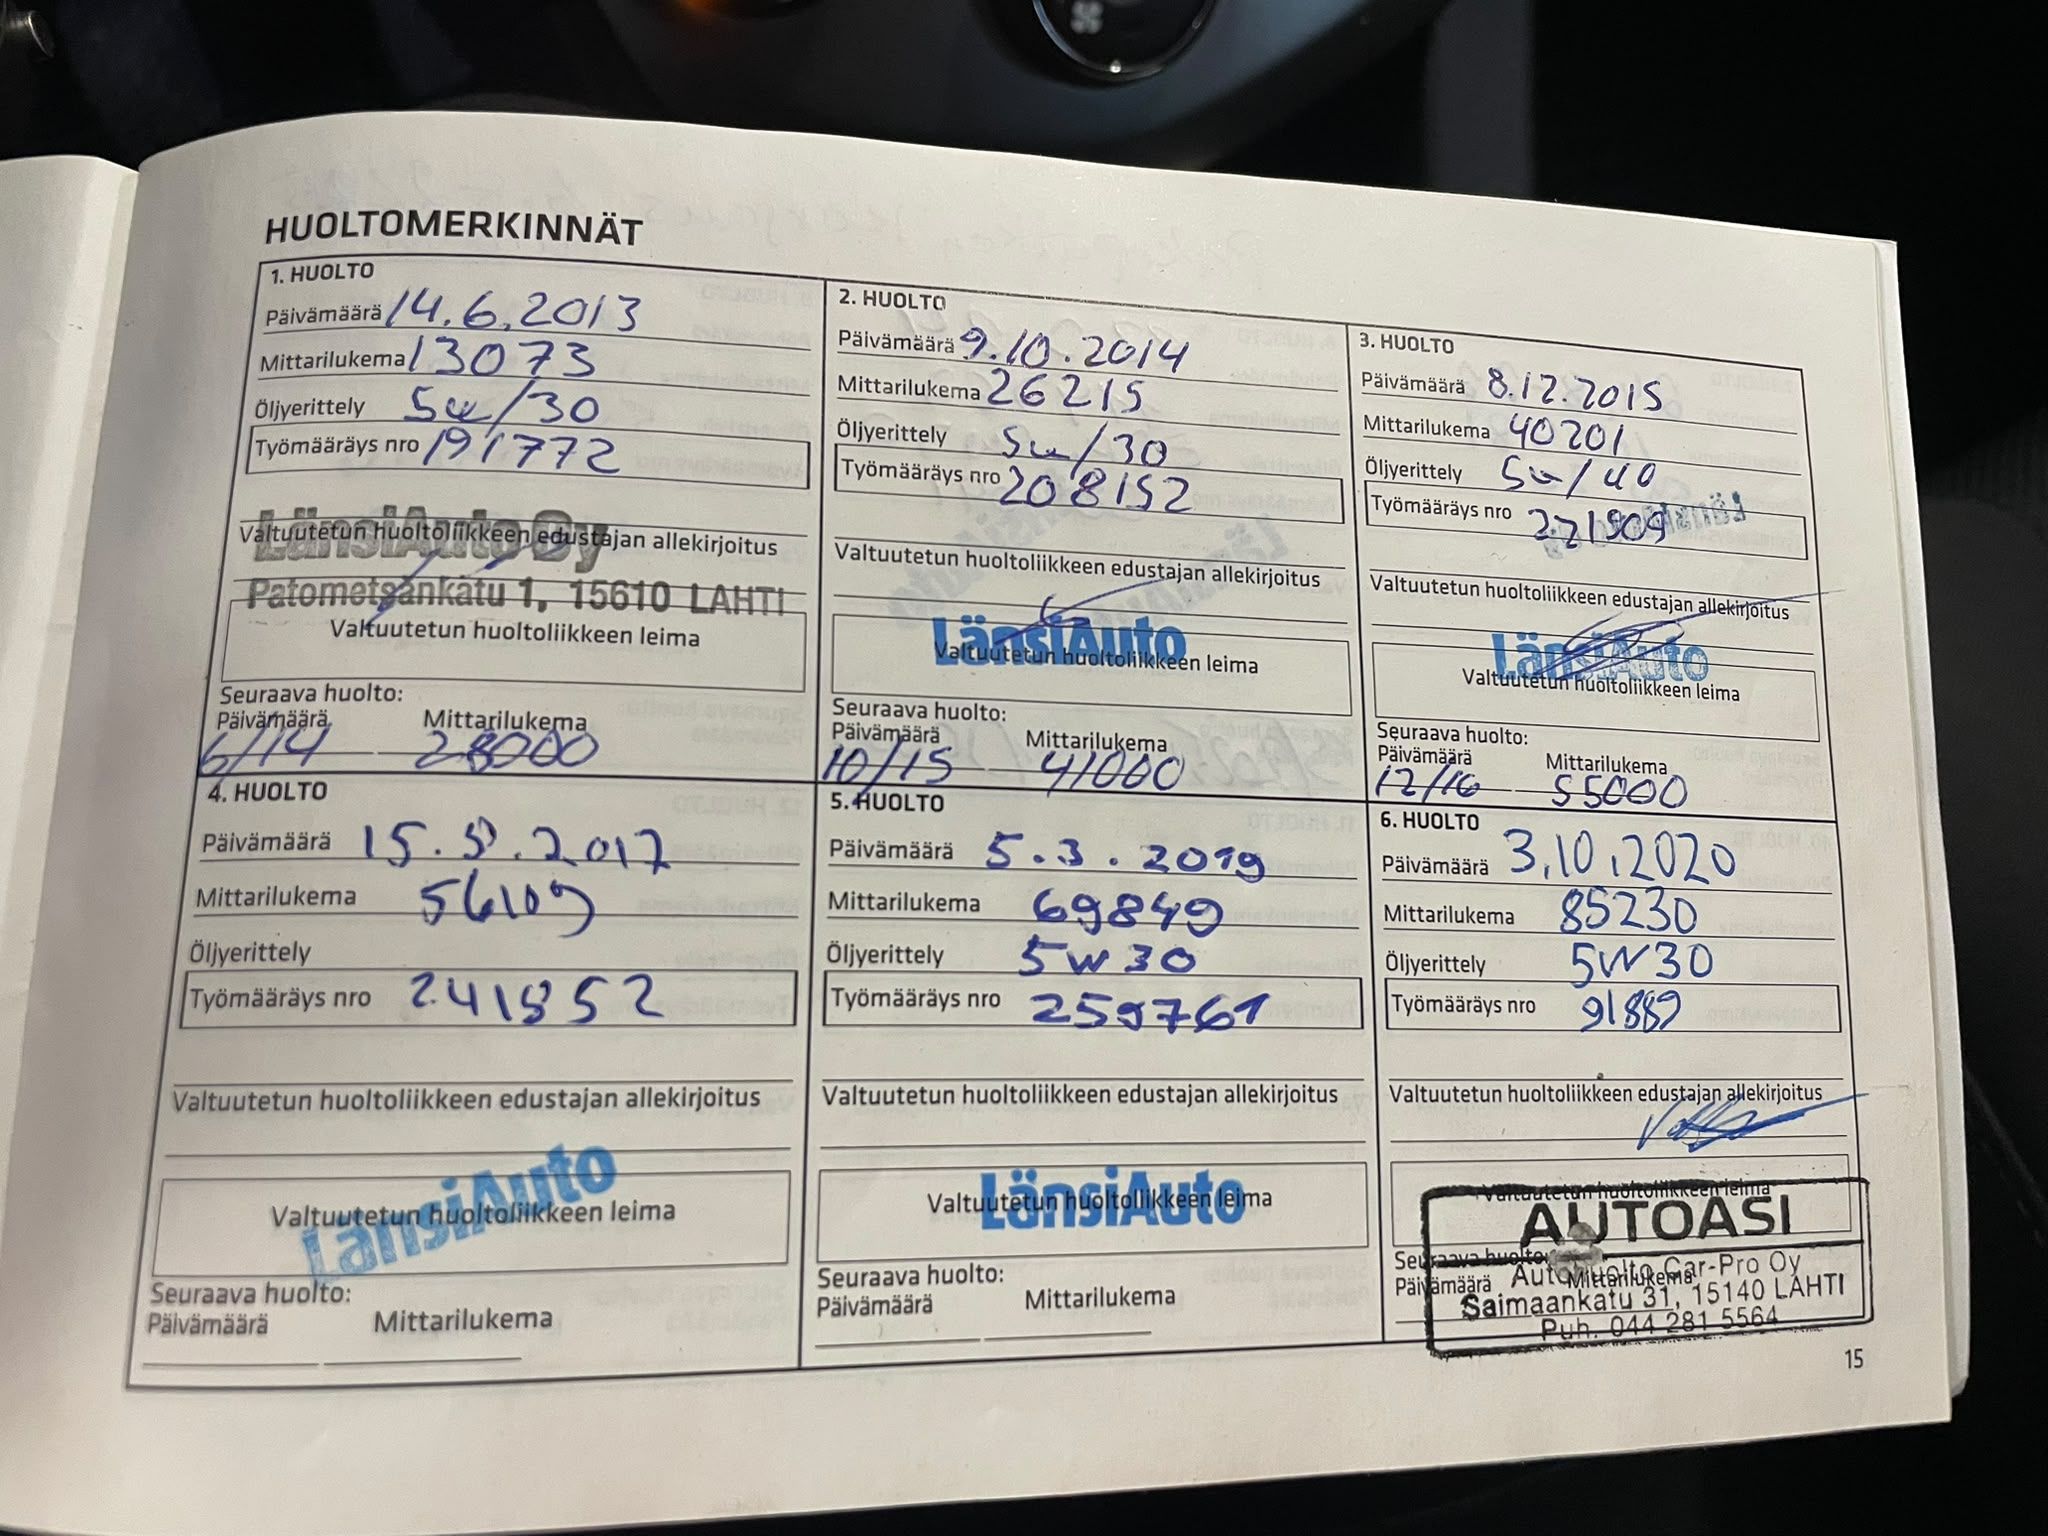 HUOLTOMERKINNÄT
1. HUOLTO
Päivämäärä 14.6.2013
Mittarilukema 13073
Öljyerittely 5w/30
Työmääräys nro 191772
LänsiAuto Oy
Valtuutetun huoltoliikkeen edustajan allekirjoitus
Patometsänkatu 1, 15610 LAHTI
Valtuutetun huoltoliikkeen leima
Seuraava huolto:
Päivämäärä Mittarilukema
6/14 28000
2. HUOLTO
Päivämäärä 9.10.2014
Mittarilukema 26215
Öljyerittely 5w/30
Työmääräys nro 208152
Valtuutetun huoltoliikkeen edustajan allekirjoitus
LänsiAuto
Valtuutetun huoltoliikkeen leima
Seuraava huolto:
Päivämäärä Mittarilukema
10/15 41000
3. HUOLTO
Päivämäärä 8.12.2015
Mittarilukema 40201
Öljyerittely 5w/40
Työmääräys nro 221909
Valtuutetun huoltoliikkeen edustajan allekirjoitus
LänsiAuto
Valtuutetun huoltoliikkeen leima
Seuraava huolto:
Päivämäärä Mittarilukema
12/16 55000
4. HUOLTO
Päivämäärä
Mittarilukema 56109
Öljyerittely
Työmääräys nro
Valtuutetun huoltoliikkeen edustajan allekirjoitus
LänsiAuto
Valtuutetun huoltoliikkeen leima
Seuraava huolto:
Päivämäärä Mittarilukema
5. HUOLTO
Päivämäärä 5.3.2019
Mittarilukema 69849
Öljyerittely 5W30
Työmääräys nro 259761
Valtuutetun huoltoliikkeen edustajan allekirjoitus
LänsiAuto
Valtuutetun huoltoliikkeen leima
Seuraava huolto:
Päivämäärä Mittarilukema
6. HUOLTO
Päivämäärä 3.10.2020
Mittarilukema 85230
Öljyerittely 5W30
Työmääräys nro 91889
Valtuutetun huoltoliikkeen edustajan allekirjoitus
Valtuutetun huoltoliikkeen leima
AUTOASI
Seuraava huolto:
Autohuolto Car-Pro Oy
Päivämäärä Mittarilukema
Saimaankatu 31, 15140 LAHTI
Puh. 044 281 5564
15